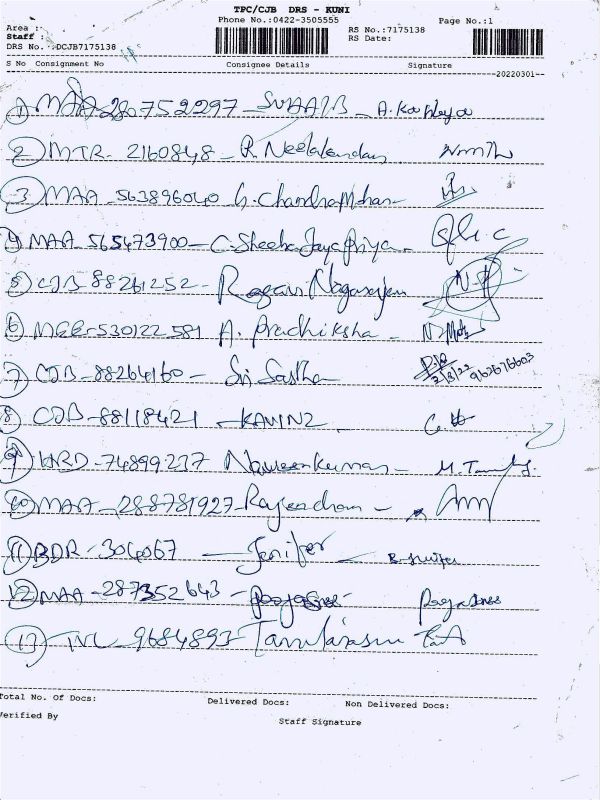 TPC/CJB DRS - KUNI
Phone No.:0422-3505555 Page No.:1
Area :
Staff : RS No.:7175138
DRS No. :DCJB7175138 RS Date:
S No Consignment No Consignee Details Signature
20220301
1 MAA 280752297 - SUHAIB -
2 MTR - 2160848 - R. Neelakandan
3 MAA - 563896040 G. Chandramohan -
4 MAA - 565473900 - C. Sheeba Jaya Priya -
5 CJB - 88261252 -
6 MEE - 530122581 A. Pradhiksha -
7 CJB - 88264160 - Sri Sastha 2/3/22
8 CJB - 88118421 - KAVINZ
9 KRD - 74899237 Naveenkumar -
10 MAA - 288781927 -
11 BDR - 304067 - Jenifer -
12 MAA - 287352643 -
13 TVL - 9684893 - Tamilarasu
Total No. Of Docs: Delivered Docs: Non Delivered Docs:
Verified By Staff Signature